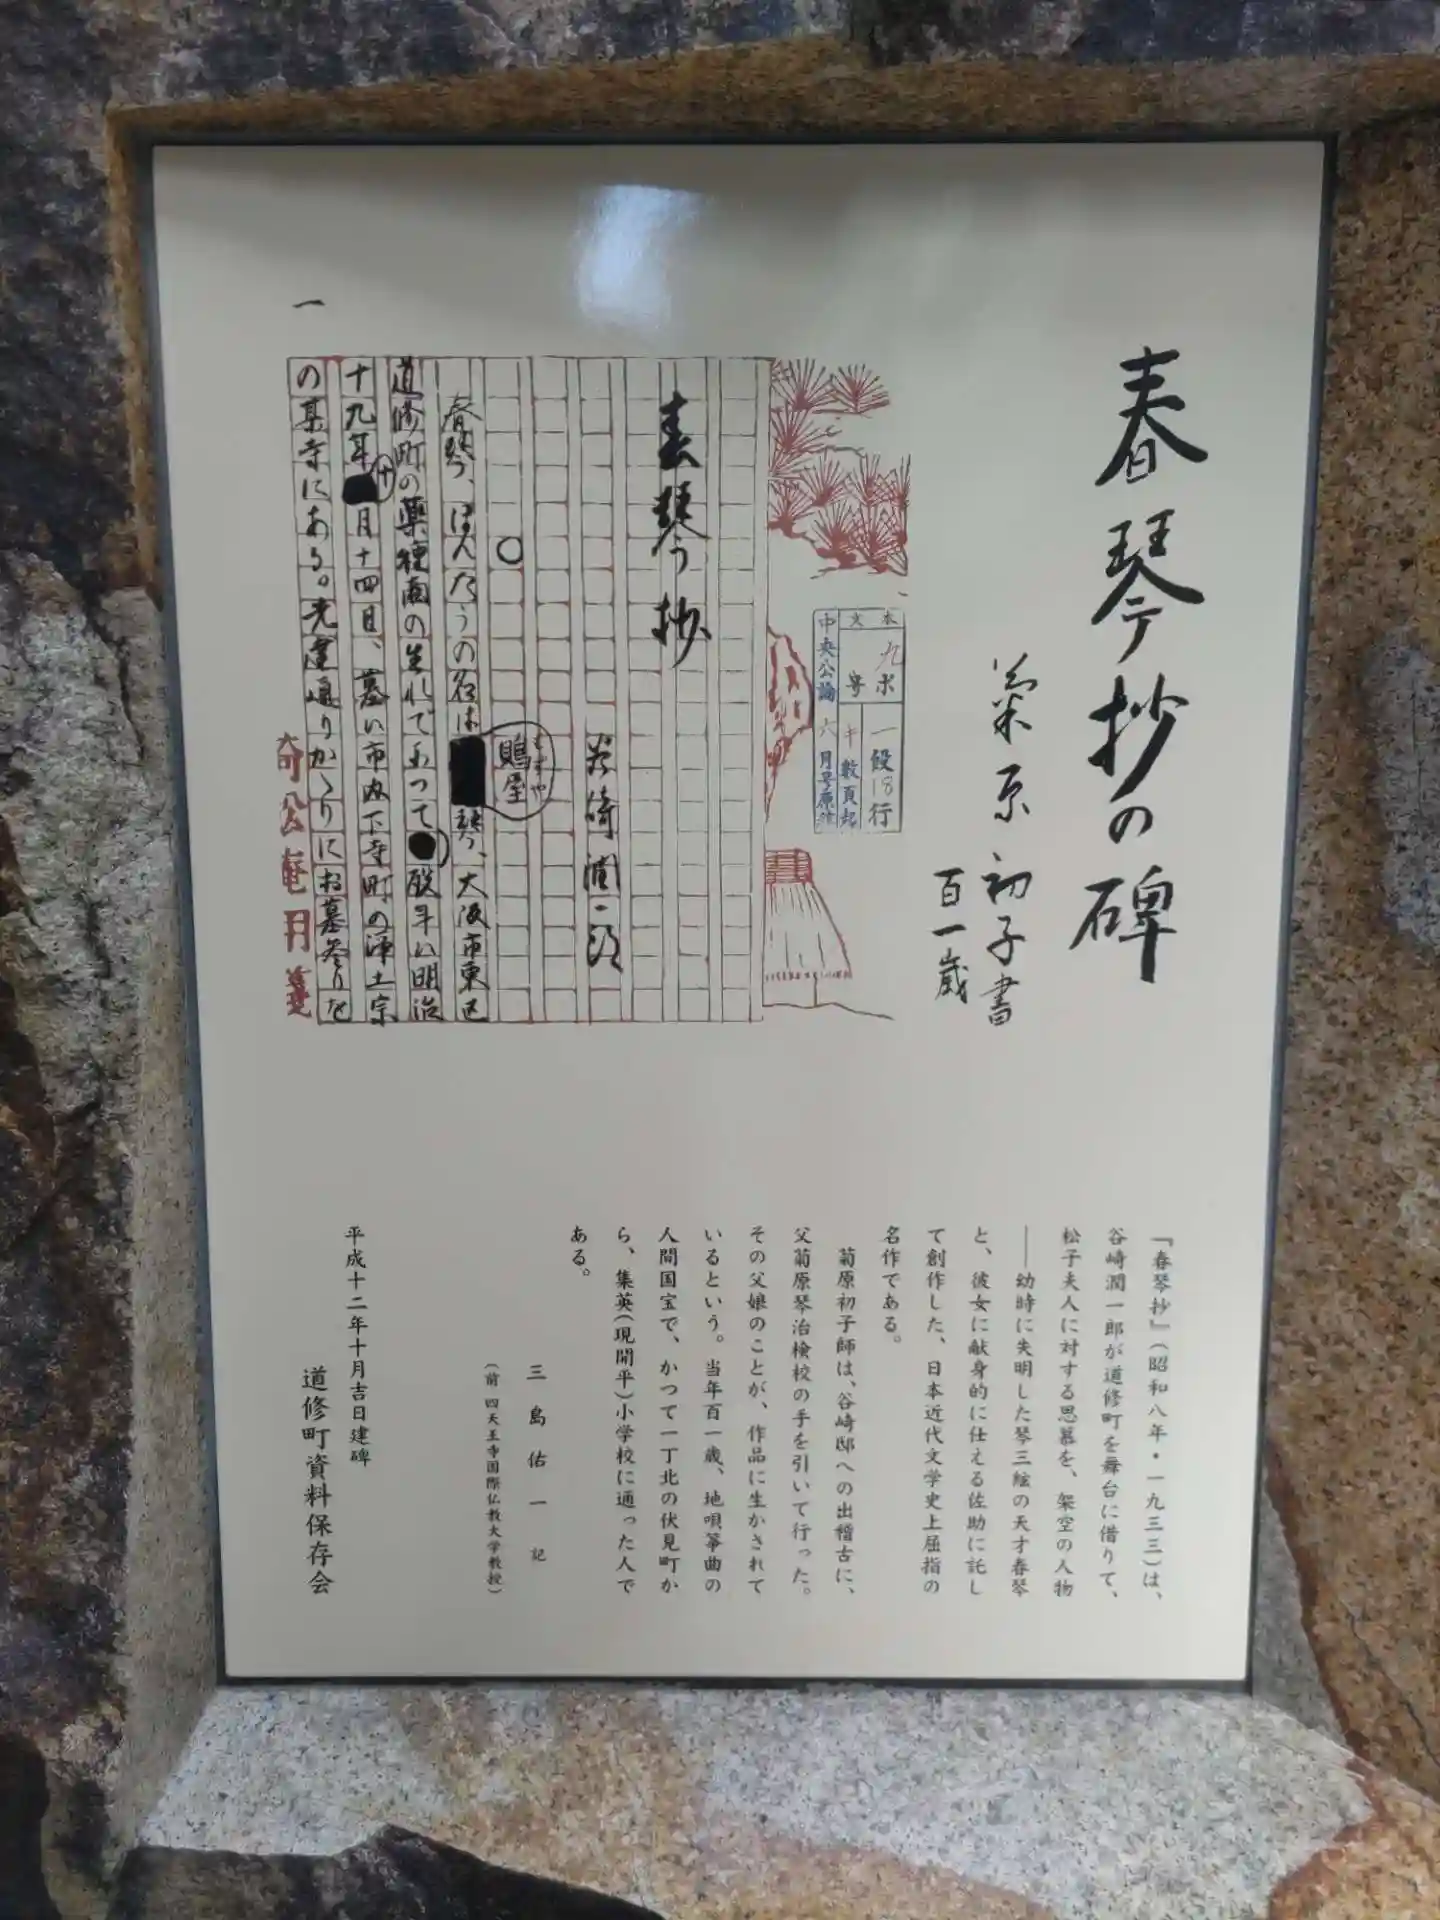 春琴抄の碑
菊原初子書
百一歳
本文
九ポ
一段18行
中央公論 六月号原稿
春琴抄
谷崎潤一郎
○
もずや
鵙屋
春琴、ほんたうの名は
琴、大阪市東区
道修町の薬種商の生れであつて
歿年は明治
十九年
十
月十四日、墓は市内下寺町の浄土宗
の某寺にある。先達通りかゝりにお墓参りを
一
『春琴抄』(昭和八年・一九三三)は、
谷崎潤一郎が道修町を舞台に借りて、
松子夫人に対する思慕を、架空の人物
――幼時に失明した琴三絃の天才春琴
と、彼女に献身的に仕える佐助に託し
て創作した、日本近代文学史上屈指の
名作である。
菊原初子師は、谷崎邸への出稽古に、
父菊原琴治検校の手を引いて行った。
その父娘のことが、作品に生かされて
いるという。当年百一歳、地唄箏曲の
人間国宝で、かつて一丁北の伏見町か
ら、集英(現開平)小学校に通った人で
ある。
三島佑一 記
(前 四天王寺国際仏教大学教授)
平成十二年十月吉日建碑
道修町資料保存会